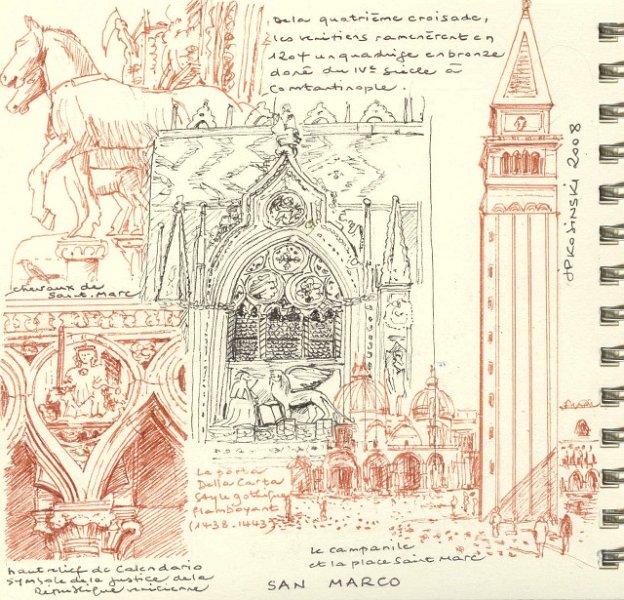 De la quatrième croisade,
les vénitiens ramenèrent en
1204 un quadrige en bronze
doré du IVe siècle à
Constantinople.
chevaux de
Saint-Marc
JP KOSINSKI 2008
La porta
Della Carta
Style gothique
flamboyant
(1438-1443)
Le campanile
et la place Saint Marc
haut relief de Calendario
symbole de la justice de la
République vénitienne
SAN MARCO